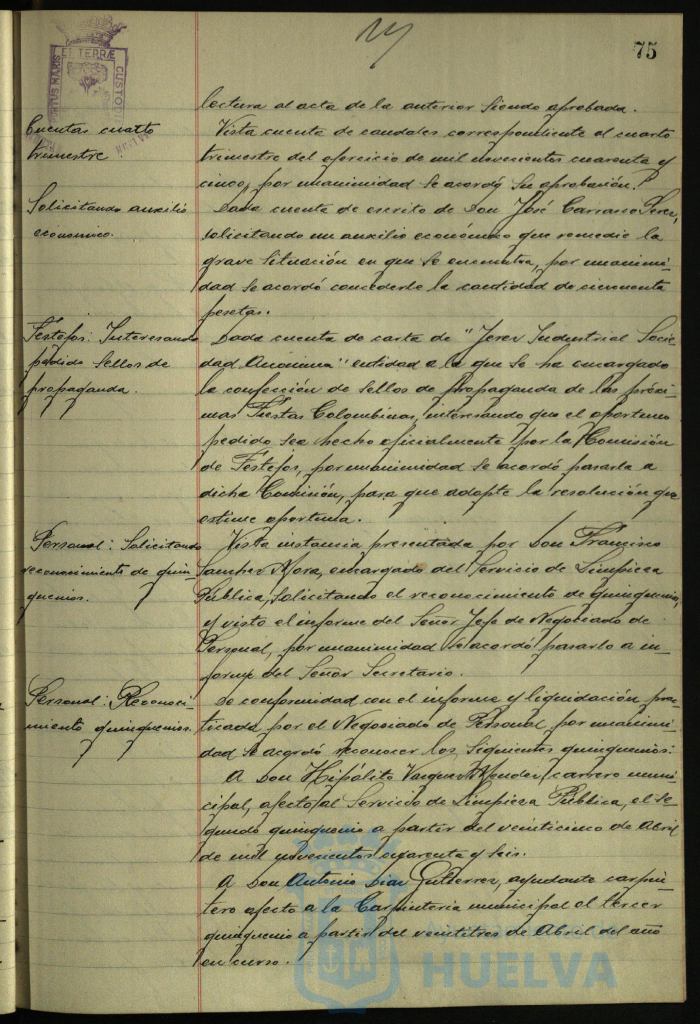 75
PORTUS MARIS
ET TERRÆ
CUSTODIA
HUELVA
lectura al acta de la anterior siendo aprobada.
Cuentas cuarto
trimestre
Vista cuenta de caudales correspondiente al cuarto
trimestre del ejercicio de mil novecientos cuarenta y
cinco, por unanimidad se acordó su aprobación.
Solicitando auxilio
económico.
Dada cuenta de escrito de Don José Carrasco Perez,
solicitando un auxilio económico que remedie la
grave situación en que se encuentra, por unanimi-
dad se acordó concederle la cantidad de cincuenta
pesetas.
Festejos: Interesando
pedido sellos de
propaganda.
Dada cuenta de carta de "Jerez Industrial Socie-
dad Anónima" entidad a la que se ha encargado
la confección de sellos de propaganda de las próxi-
mas Fiestas Colombinas, interesando que el oportuno
pedido sea hecho oficialmente por la Comisión
de Festejos, por unanimidad se acordó pasarla a
dicha Comisión, para que adopte la resolución que
estime oportuna.
Personal: Solicitando
reconocimiento de quin-
quenios.
Vista instancia presentada por Don Francisco
Sanchez Mora, encargado del Servicio de Limpieza
Pública, solicitando el reconocimiento de quinquenios,
y visto el informe del Señor Jefe de Negociado de
Personal, por unanimidad se acordó pasarlo a in-
forme del Señor Secretario.
Personal: Reconoci-
miento quinquenios.
De conformidad con el informe y liquidación prac-
ticada por el Negociado de Personal, por unanimi-
dad se acordó reconocer los siguientes quinquenios:
A Don Hipólito Vazquez Mendez, carrero muni-
cipal, afecto al Servicio de Limpieza Pública, el se-
gundo quinquenio a partir del veinticinco de Abril
de mil novecientos cuarenta y seis.
A Don Antonio Diaz Gutierrez, ayudante carpin-
tero afecto a la Carpintería municipal el tercer
quinquenio a partir del veintitres de Abril del año
en curso.
HUELVA